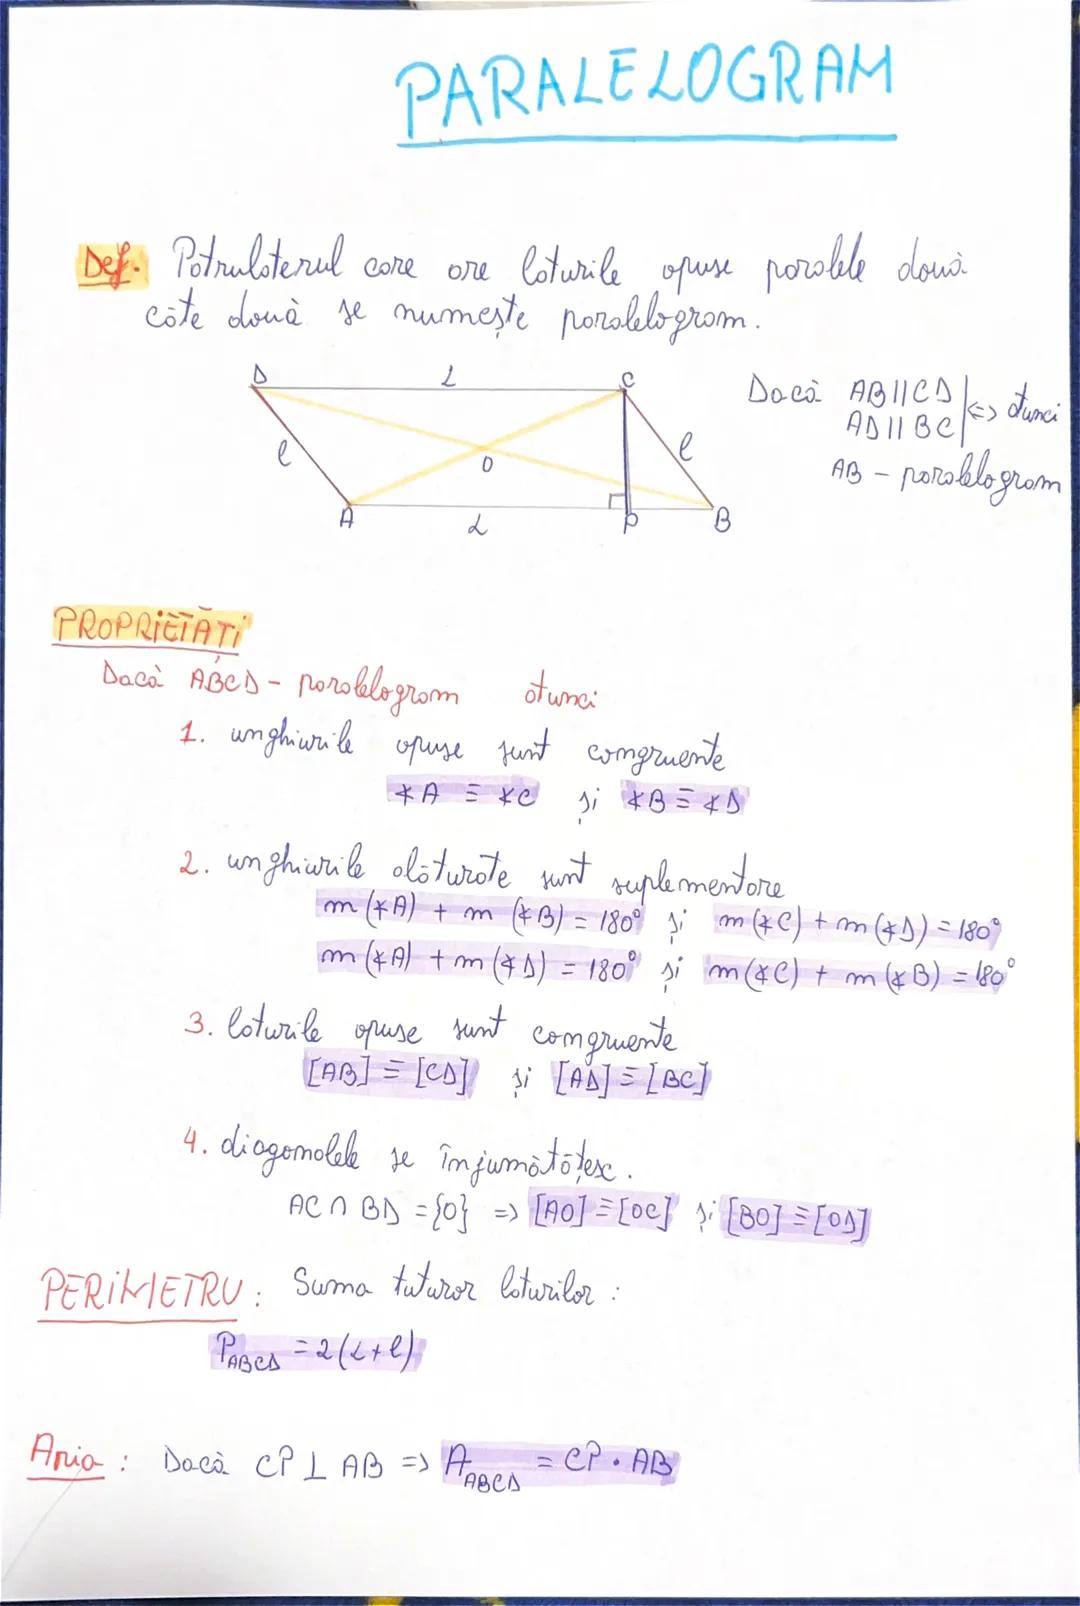 PARALELOGRAM
Def. Patrulaterul care are laturile opuse paralele două
câte două se numește paralelogram.
D L C
l l
O
A L P B
Dacă AB||CD
AD||BC <=> atunci
AB - paralelogram
PROPRIETĂȚI
Dacă ABCD - paralelogram atunci
1. unghiurile opuse sunt congruente
∢A ≡ ∢C și ∢B ≡ ∢D
2. unghiurile alăturate sunt suplementare
m(∢A) + m(∢B) = 180° și m(∢C) + m(∢D) = 180°
m(∢A) + m(∢D) = 180° și m(∢C) + m(∢B) = 180°
3. laturile opuse sunt congruente
[AB] ≡ [CD] și [AD] ≡ [BC]
4. diagonalele se înjumătățesc.
AC ∩ BD = {O} => [AO] ≡ [OC] și [BO] ≡ [OD]
PERIMETRU: Suma tuturor laturilor:
P_ABCD = 2(L+l)
Aria: Dacă CP ⊥ AB => A_ABCD = CP · AB